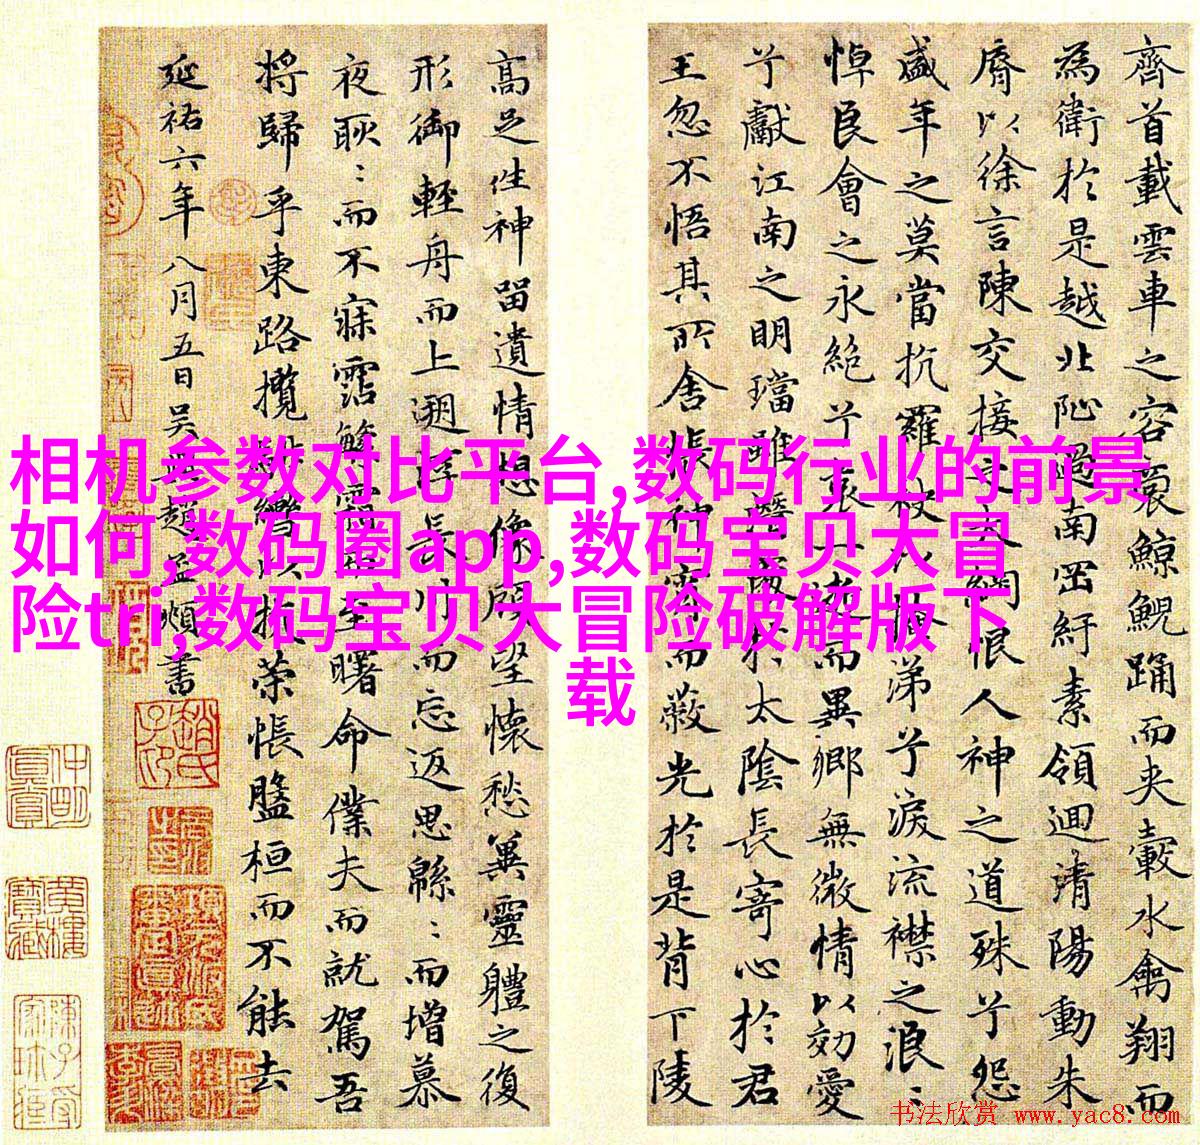 齊首載雲車之容裔鯨鯢踊而夾轂水禽翔而
為衛於是越北沚過南岡紆素領迴清陽動朱
脣以徐言陳交接之大綱恨人神之道殊兮怨
盛年之莫當抗羅袂以掩涕兮淚流襟之浪:
悼良會之永絕兮哀一逝而異鄉無微情以効愛
兮獻江南之明璫雖潛處於太陰長寄心於君
王忽不悟其所舍悵神霄而蔽光於是背下陵
高足往神留遺情想像顧望懷愁冀靈體之復
形御輕舟而上遡浮長川而忘返思緜:而增慕
夜耿:而不寐霑繁霜而至曙命僕夫而就駕吾
將歸乎東路攬騑轡以抗策悵盤桓而不能去
延祐六年八月五日吴興趙孟頫書
相机参数对比平台,数码行业的前景
如何,数码圈app,数码宝贝大冒
险tri,数码宝贝大冒险破解版下
载
书法欣赏 www.yac8.com